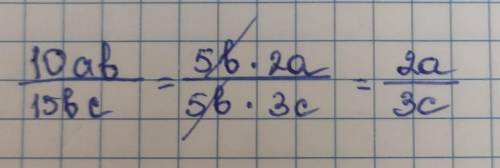 10ab/15bc = 5b · 2a/5b · 3c = 2a/3c